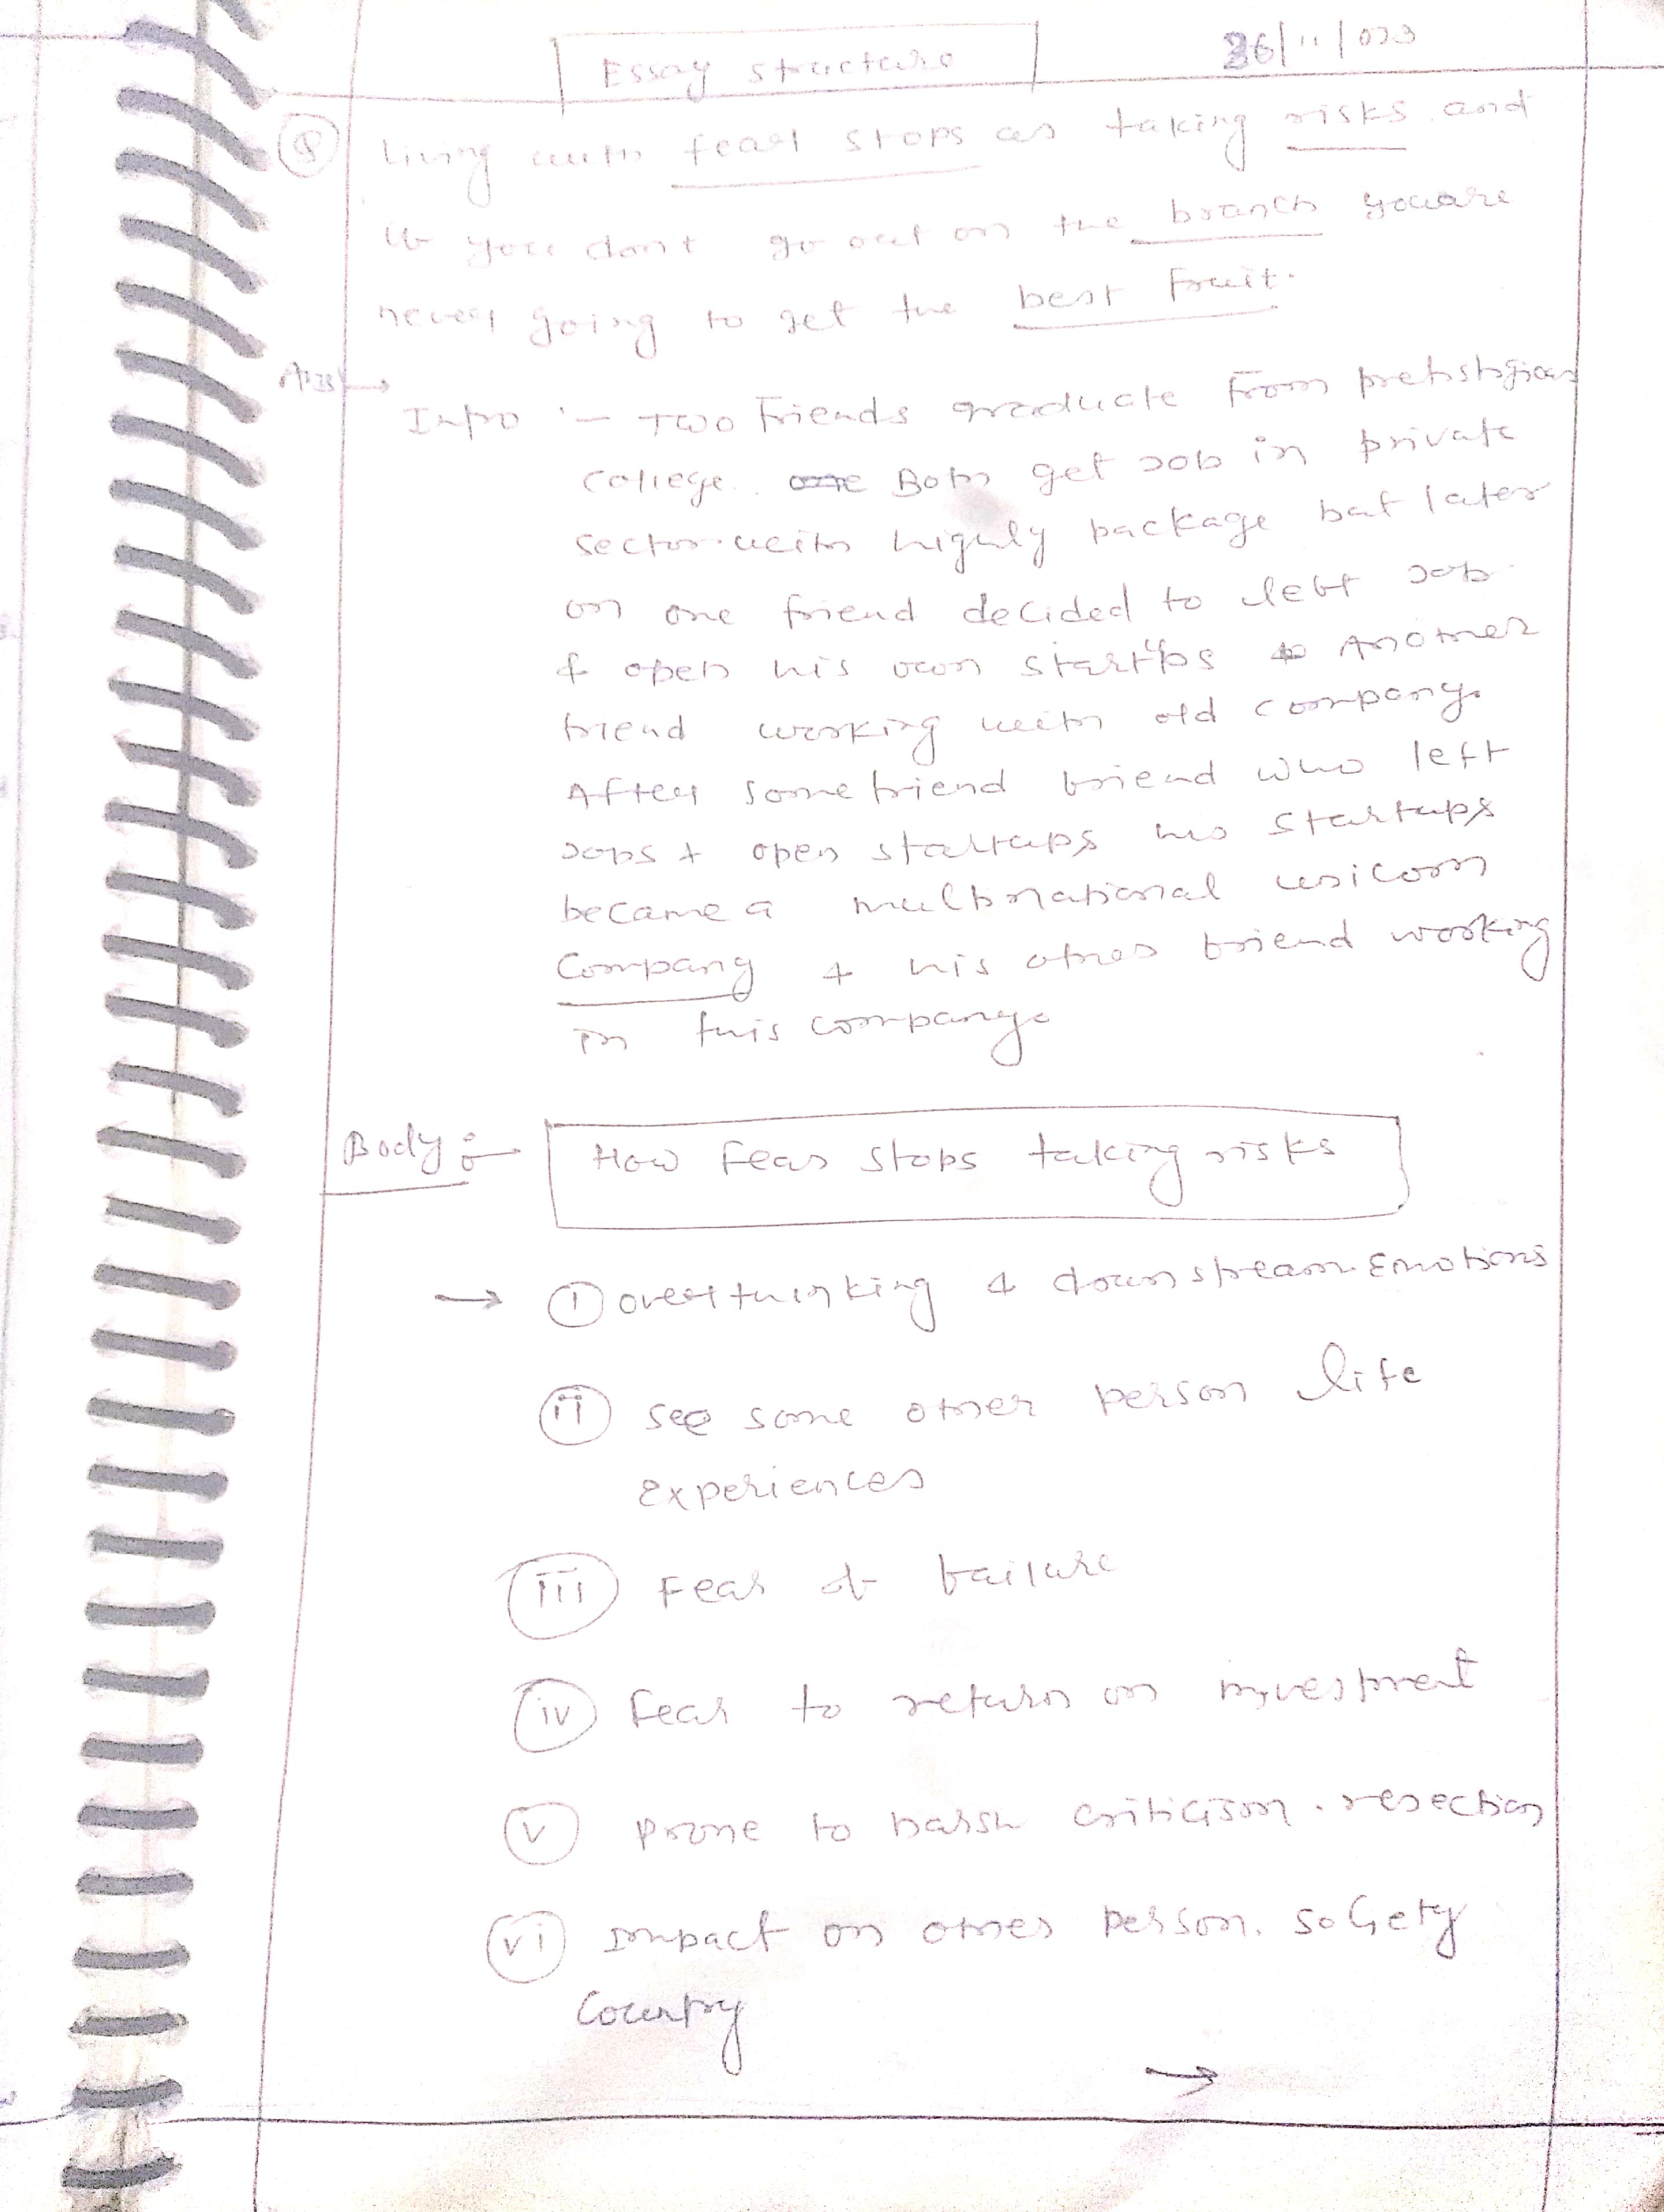 Essay structure
26/11/023
Q Living with fear stops us taking risks and
if you don't go out on the branch you are
never going to get the best fruit.
Ans →
Intro :- Two Friends graduate from prestigious
college. one Both get Job in private
sector with highly package but later
on one friend decided to left Job
& open his own start'ups & Another
friend working with old company.
After some friend friend who left
Jobs & open startups his startups
became a multinational unicorn
Company & his other friend working
in this company.
Body :- How fear stops taking risks
→ (i) overthinking & downstream Emotions
(ii) see some other person life
experiences
(iii) Fear of failure
(iv) Fear to return on investment
(v) Prone to harsh criticism. rejection
(vi) Impact on other person. society
Country
→